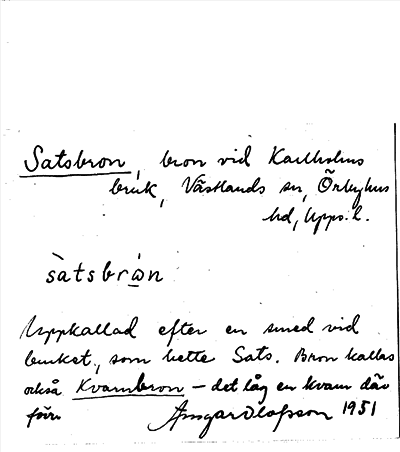 Satsbron, bron vid Karlholms
bruk, Västlands sn, Örbyhus
hd, Upps. l.
sàtsbròn
Uppkallad efter en smed vid
bruket, som hette Sats. Bron kallas
också Kvarnbron – det låg en kvarn där
förr. Ansgar Olofsson 1951